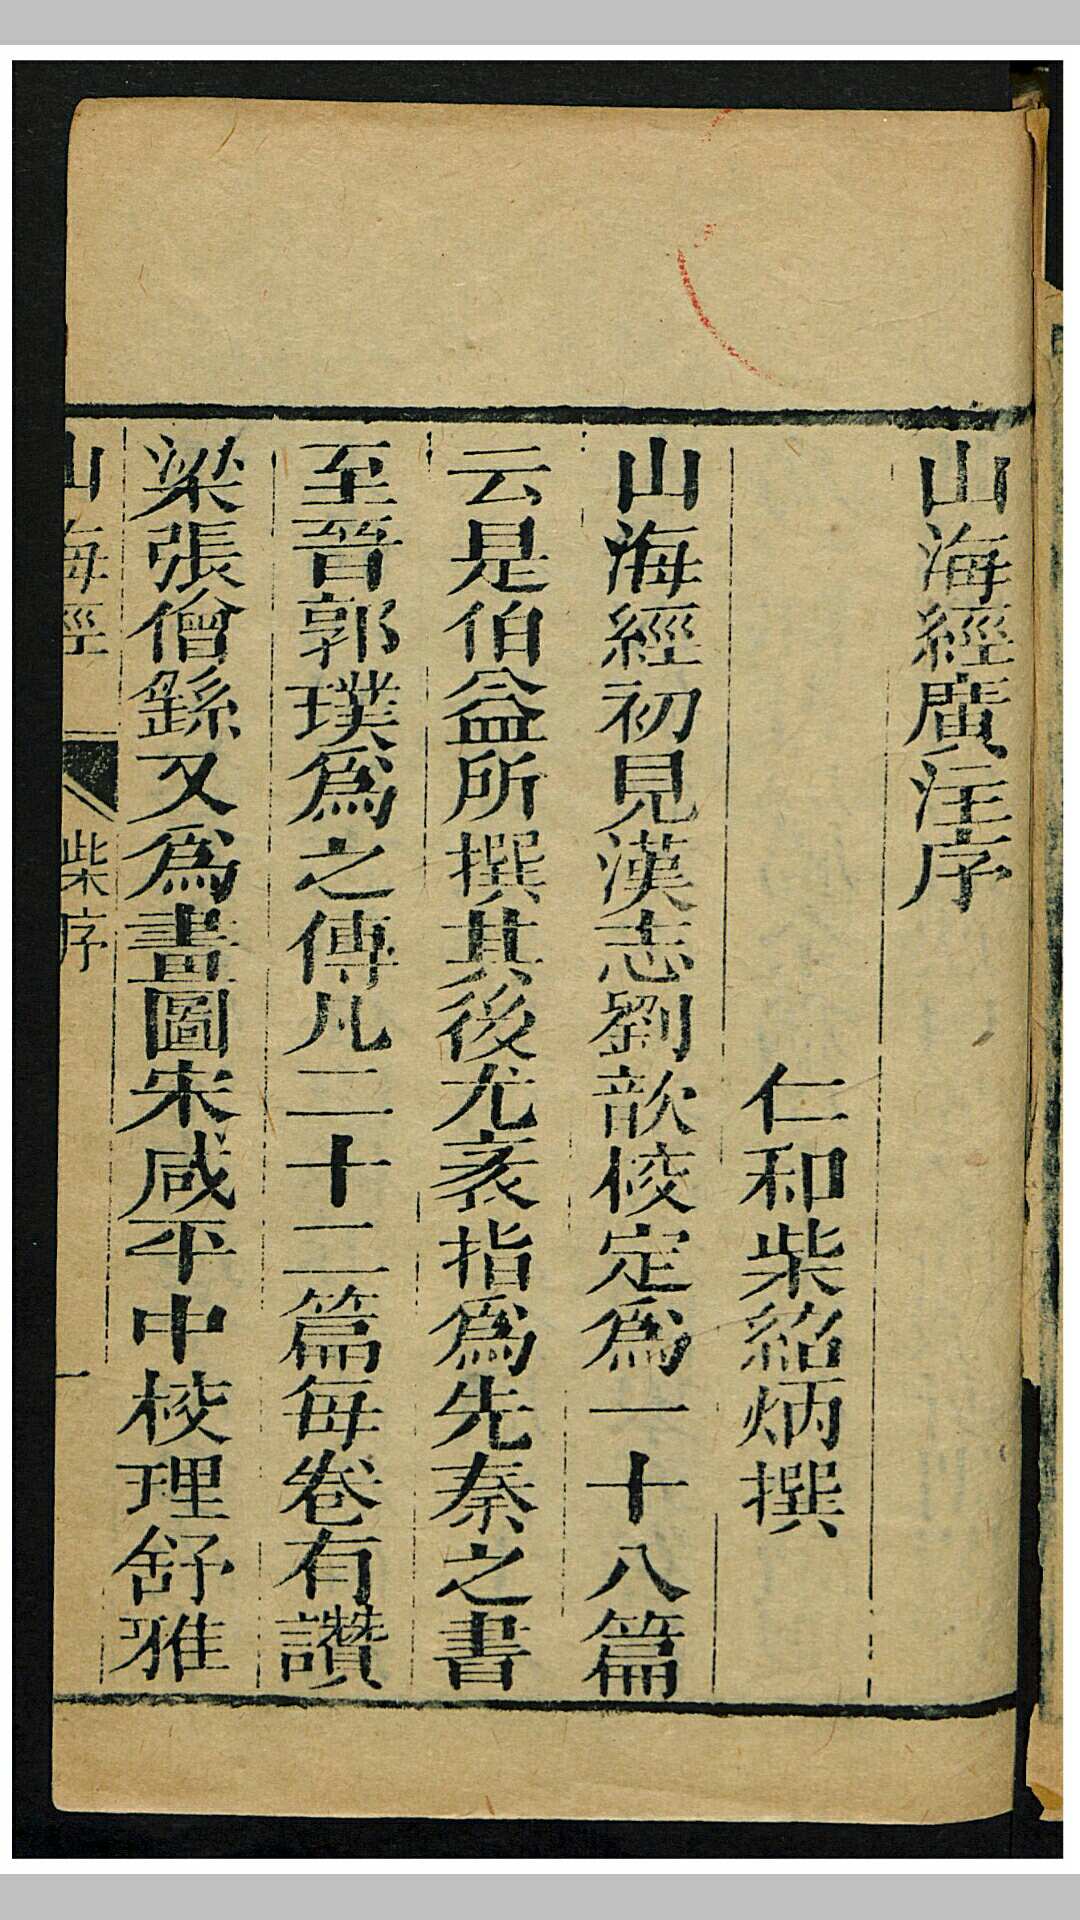 山海經廣注序
仁和柴紹炳撰
山海經初見漢志劉歆校定爲一十八篇
云是伯益所撰其後尤袤指爲先秦之書
至晉郭璞爲之傳凡二十二篇每卷有讚
梁張僧繇又爲畫圖宋咸平中校理舒雅
山海經 柴序 一